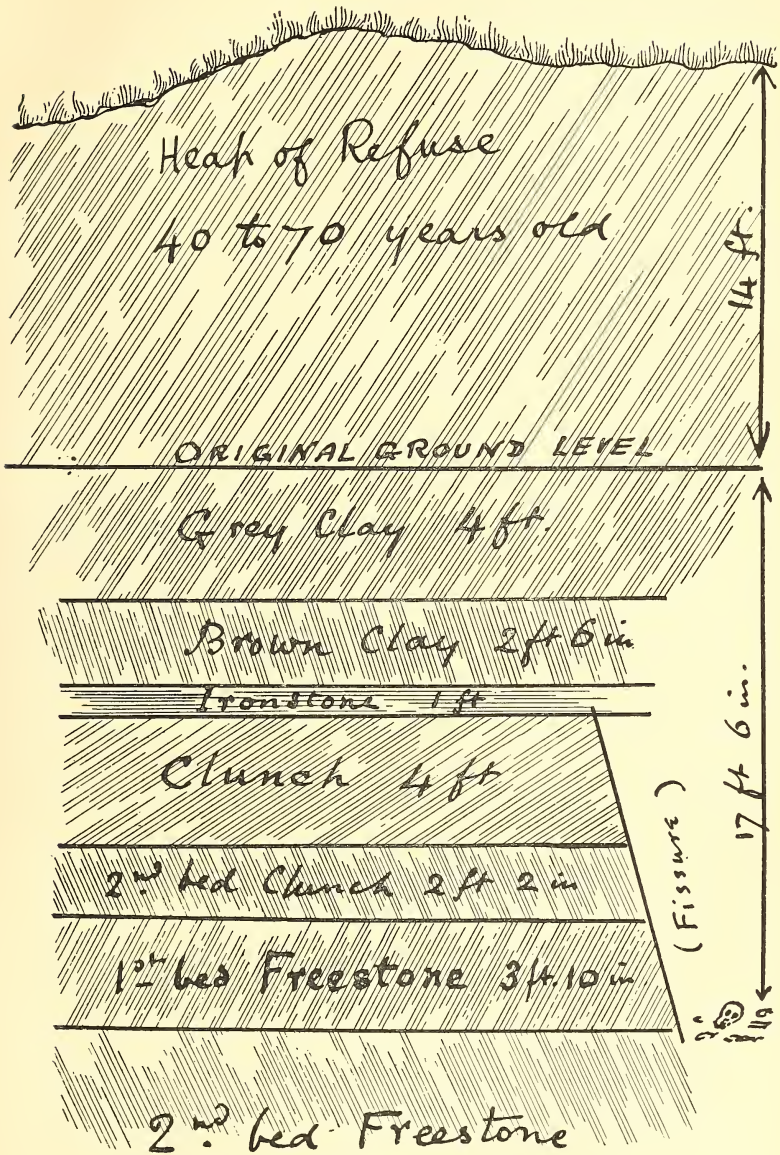 Heap of Refuse
40 to 70 years old
14 ft.
ORIGINAL GROUND LEVEL
Grey Clay 4 ft.
Brown Clay 2 ft 6 in
Ironstone 1 ft
Clunch 4 ft
2nd bed Clunch 2 ft 2 in
1st bed Freestone 3 ft. 10 in
2nd bed Freestone
(Fissure)
17 ft 6 in.